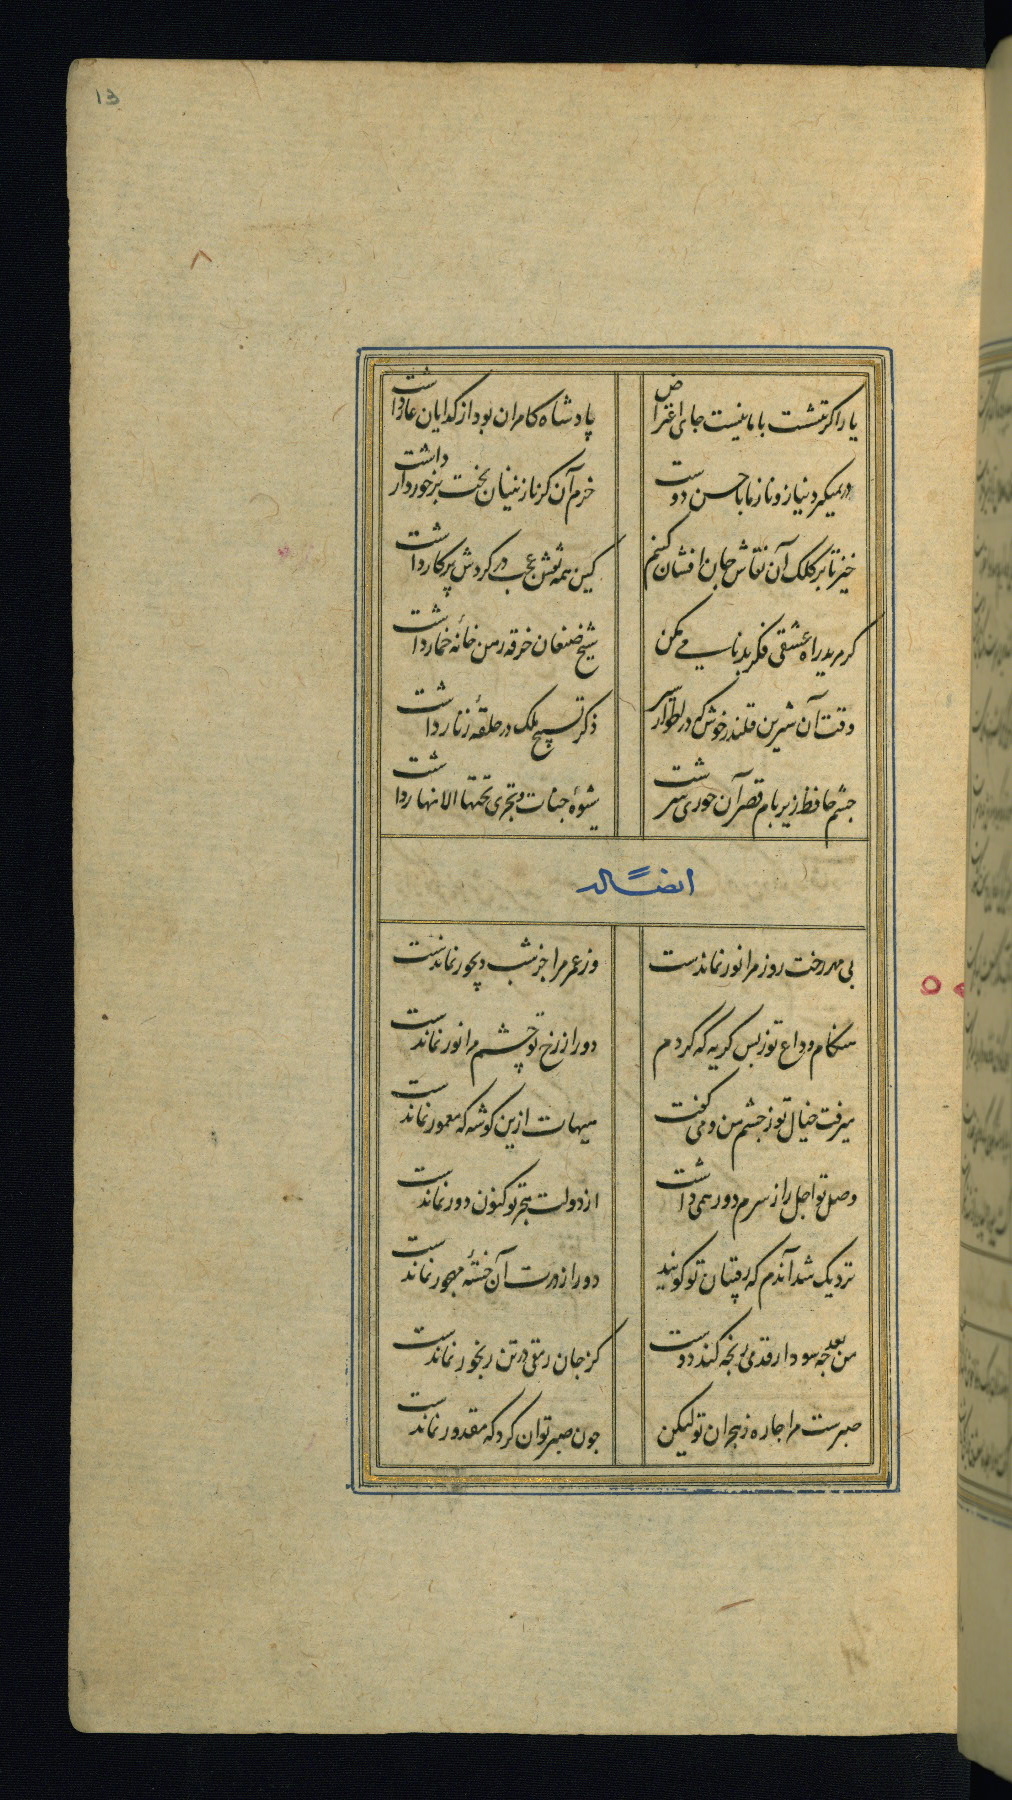 13
یار اکر ننشست با ما نیست جای اعتراض
پادشاه کامران بود از کدایان عار داشت
درنمیکیرد نیاز و ناز ما با حسن دوست
خرم آن کز نازنینان بخت برخوردار داشت
خیز تا بر کلک آن نقاش جان افشان کنیم
کین همه نقش عجب در کردش پرکار داشت
کر مرید راه عشقی فکر بدنامی مکن
شیخ صنعان خرقه رهن خانهٔ خمار داشت
وقت آن شیرین قلندر خوش که در اطوار سیر
ذکر تسبیح ملک در حلقهٔ زنار داشت
چشم حافظ زیر بام قصر آن حوری سرشت
شیوهٔ جنات تجری تحتها الانهار داشت
ایضاً له
بی مهر رخت روز مرا نور نماندست
وز عمر مرا جز شب دیجور نماندست
هنکام وداع تو ز بس کریه که کردم
دور از رخ تو چشم مرا نور نماندست
میرفت خیال تو ز چشم من و می کفت
هیهات ازین کوشه که معمور نماندست
وصل تو اجل را ز سرم دور همی داشت
از دولت هجر تو کنون دور نماندست
نزدیک شد آندم که رقیبان تو کویند
دور از درت آن خستهٔ مهجور نماندست
من بعد چه سود ار قدمی رنجه کند دوست
کز جان رمقی در تن رنجور نماندست
صبرست مرا چاره ز هجران تو لیکن
چون صبر توان کرد که مقدور نماندست